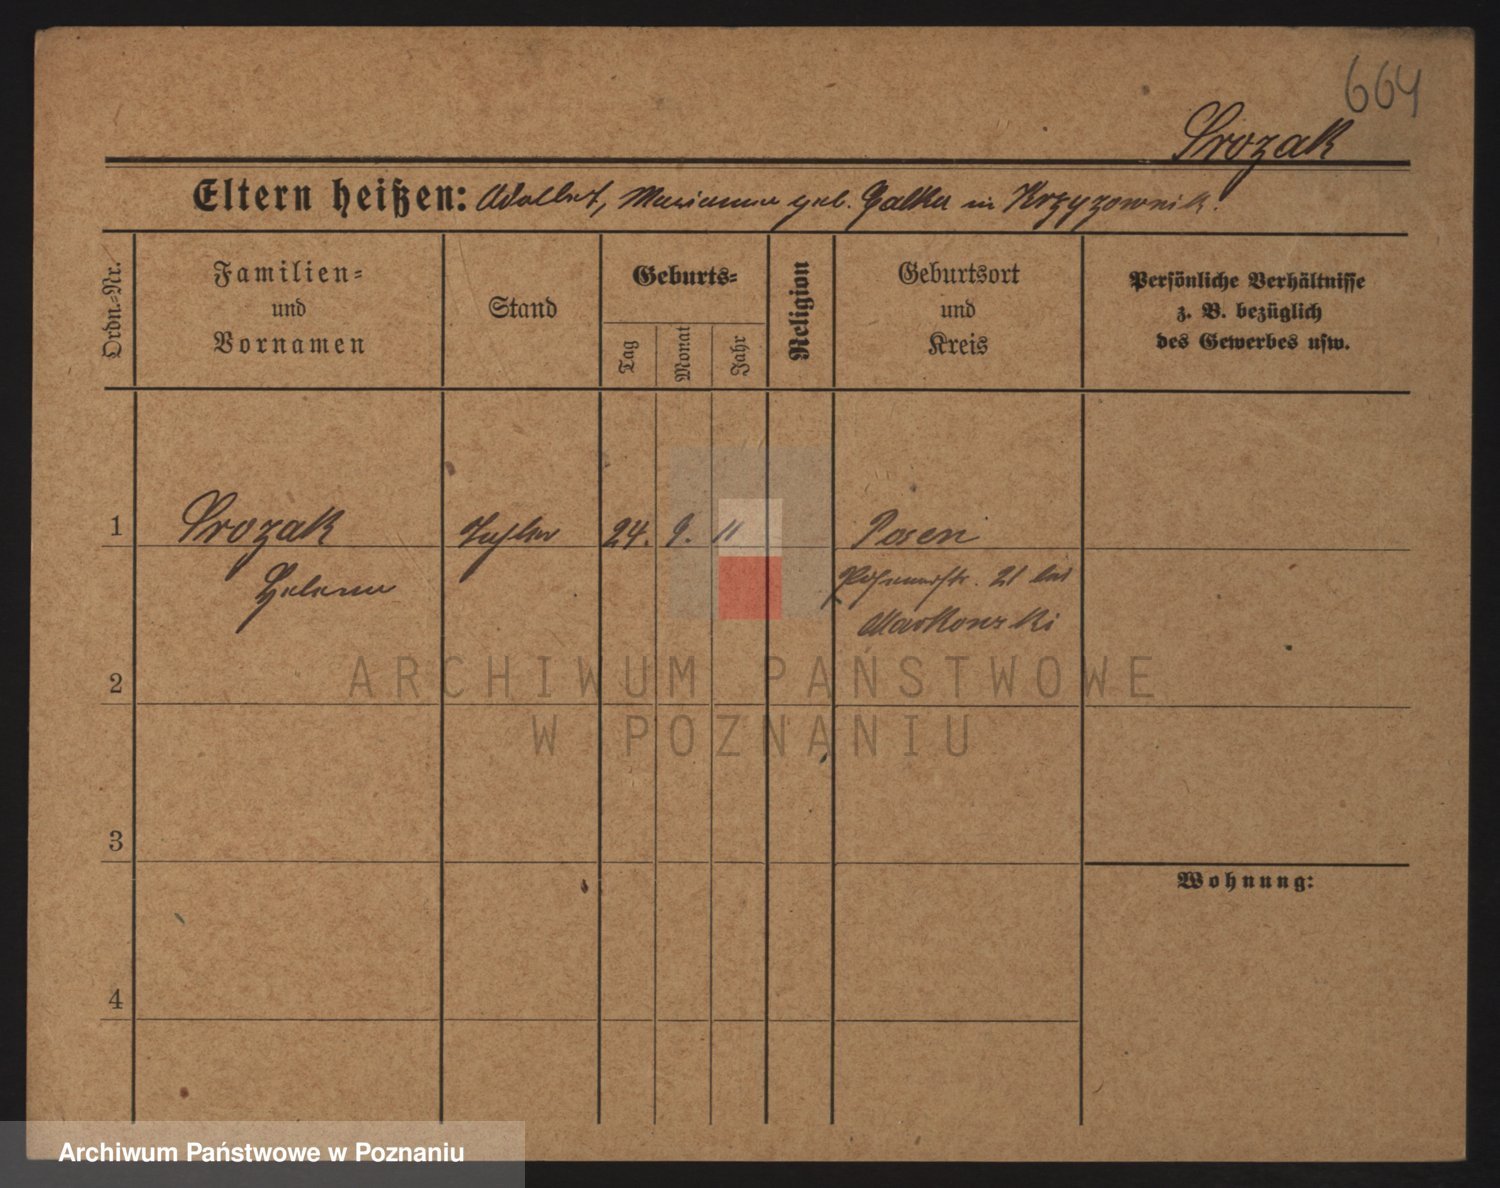 664
Srozak
Eltern heißen: Adalbert, Marianna geb. Galka in Krzyzownik.
Ordn.-Nr.
Familien-
und
Vornamen
Stand
Geburts-
Tag
Monat
Jahr
Religion
Geburtsort
und
Kreis
Persönliche Verhältnisse
z. B. bezüglich
des Gewerbes usw.
1 Srozak 24. 9. 11 Posen
Helena
21 bei
Markonski
2
3
4
Wohnung:
ARCHIWUM PAŃSTWOWE
W POZNANIU
Archiwum Państwowe w Poznaniu